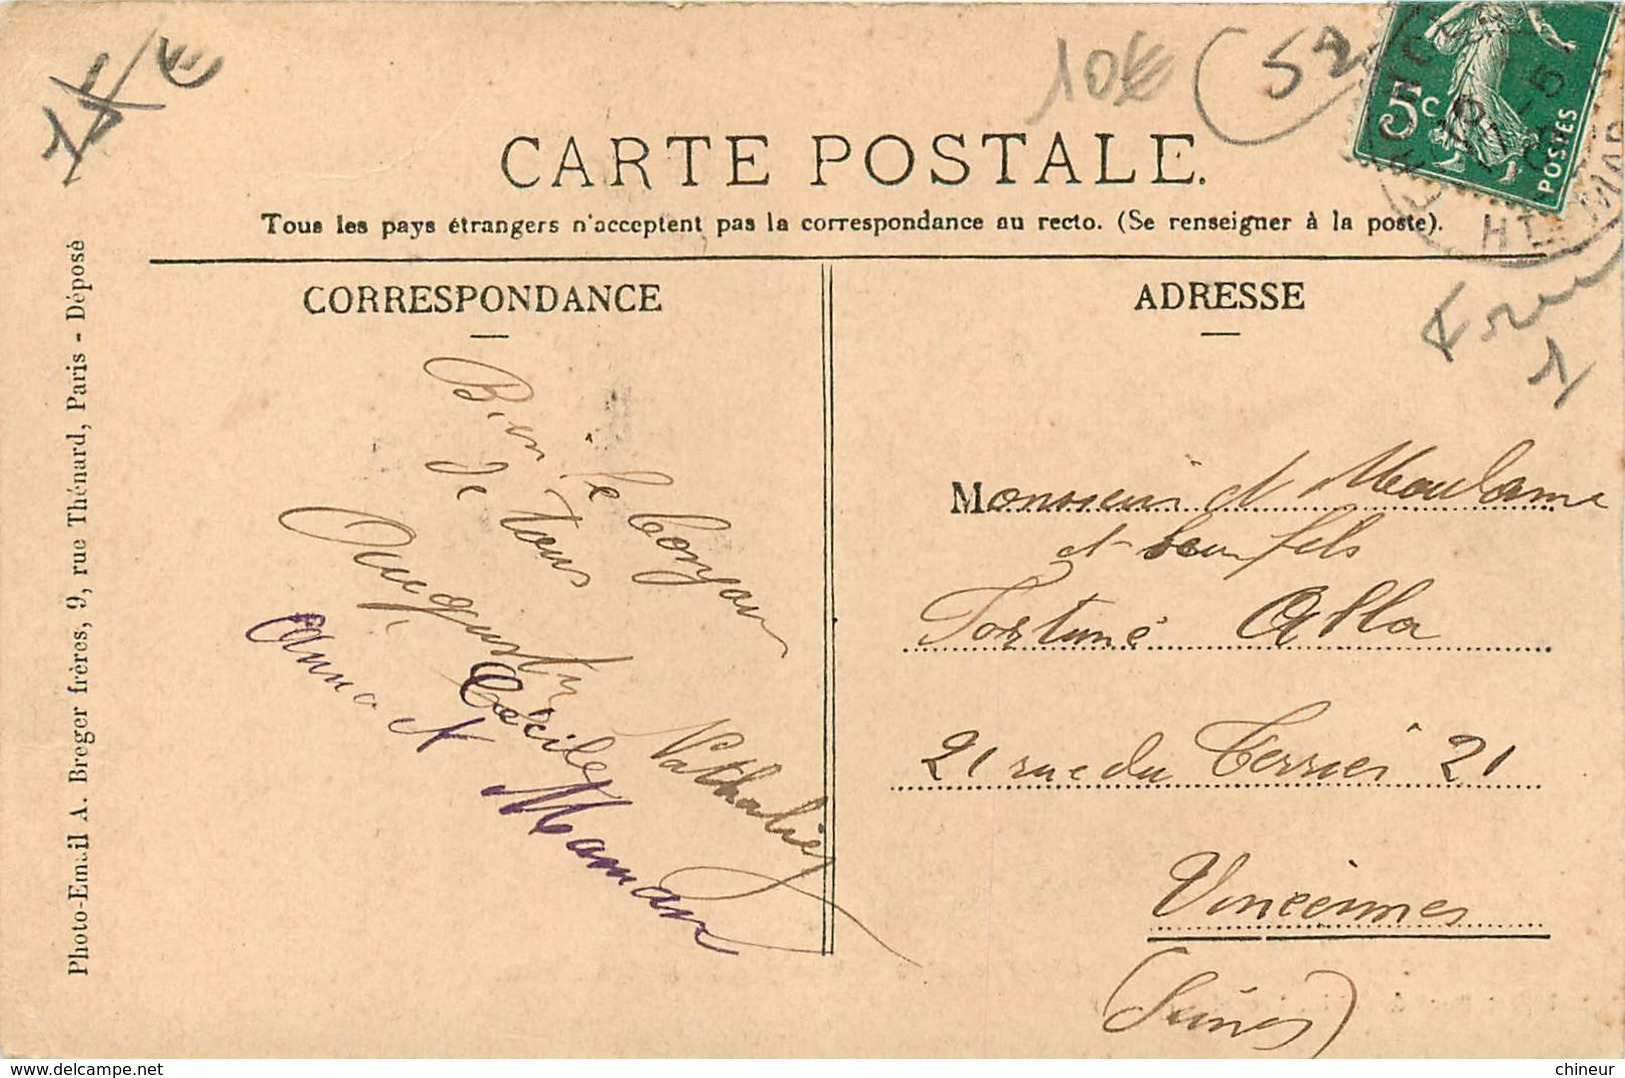 1X €
10€
52
5c
POSTES
HTE MAR
CARTE POSTALE.
Tous les pays étrangers n'acceptent pas la correspondance au recto. (Se renseigner à la poste).
CORRESPONDANCE
ADRESSE
Bien le bonjour
de tous
Augustin
Nathalie
Cécile
Anna et Maman
Monsieur et Madame
et leur fils
Fortuné Alla
21 rue du Terrier 21
Vincennes
(Seine)
Photo-Email A. Breger frères, 9, rue Thénard, Paris - Déposé
delcampe.net
chineur